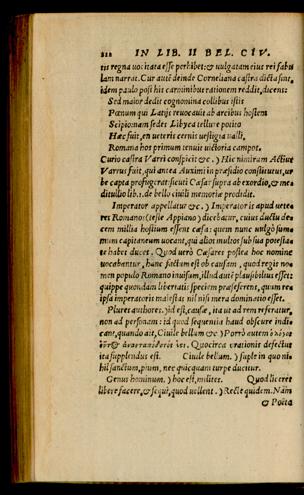 212 IN LIB. II BEL. CIV.
tis regna uocitata esse perhibet: & uulgatam eius rei fabu
lam narrat. Cur autē deinde Corneliana castra dicta sunt,
idem paulo pòst his carminibus rationem reddit, dicens:
Sed maior dedit cognomina collibus istis
Pœnum qui Latijs reuocauit ab arcibus hostem
Scipio: nam sedes Libyca tellure potito
Hæc fuit, en ueteris cernis uestigia ualli,
Romana hos primum tenuit uictoria campos.
Curio castra Varri conspicit &c.) Hic nimirum Actius
Varrus fuit, qui antea Auximi in præsidio constitutus, ur
be capta profugerat sicuti Cæsar supra ab exordio, & me
ditullio lib. 1. de bello ciuili memoriæ prodidit.
Imperator appellatur &c.) Imperator is apud uete
res Romanos (teste Appiano) dicebatur, cuius ductu de
cem millia hostium essent cæsa: quem nunc uulgò sum
mum capitaneum uocant, qui alios multos sub sua potesta
te habet duces. Quod uerò Cæsares postea hoc nomine
uocabantur, hanc factum est ob causam, quod regis no
men populo Romano inuisum, illud autē plausibilius esset:
quippe quod iam liberatis speciem præseferens, quum re
ipsa imperatoris maiestas nil nisi mera dominatio esset.
Plures authores.) id est, causæ, ita ut ad rem referatur,
non ad personam: id quod sequentia haud obscurè indi
cant, quando ait, Ciuile bellum &c.) Porrò autem
Quocirca orationis defectus
ita supplendus est. Ciuile bellum.) suple in quo ni
hil sanctum, pium, nec quicquam turpe ducitur.
Genus hominum.) hoc est, milites. Quod liceret
liberè facere, & sequi, quod uellent.) Rectè quidem. Nam
& Poëta